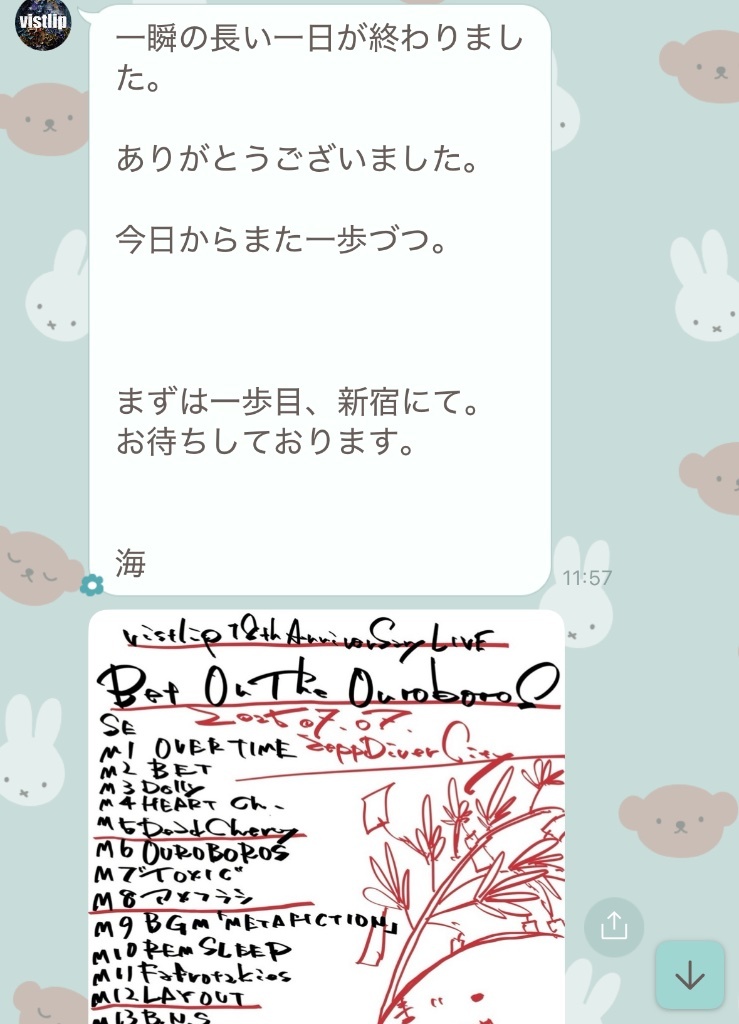 vistlip
一瞬の長い一日が終わりまし
た。
ありがとうございました。
今日からまた一歩づつ。
まずは一歩目、新宿にて。
お待ちしております。
海
11:57
vistlip 18th Anniversary LIVE
Bet On The Ouroboros
2025.07.07.
SE
Zepp DiverCity
M1 OVERTIME
M2 BET
M3 Dolly
M4 HEART Ch.
M5 Dead Cherry
M6 OUROBOROS
M7 "TOXIC"
M8 アメフラシ
M9 BGM「METAFICTION」
M10 REM SLEEP
M11 Fafrotzkies
M12 LAYOUT
M13 B.N.S